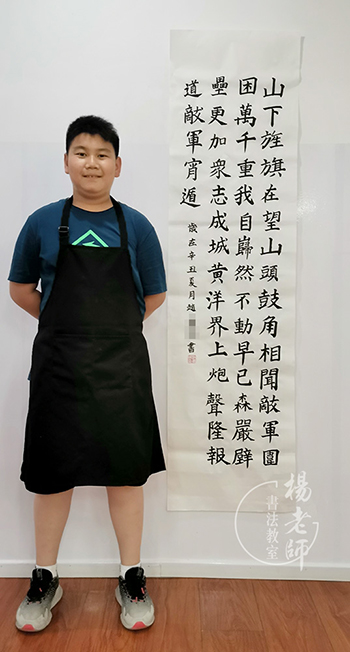 山下旌旗在望山頭鼓角相聞敵軍圍
困萬千重我自巋然不動早已森嚴壁
壘更加衆志成城黃洋界上炮聲隆報
道敵軍宵遁
歲在辛丑夏月 書
楊老師
書法教室